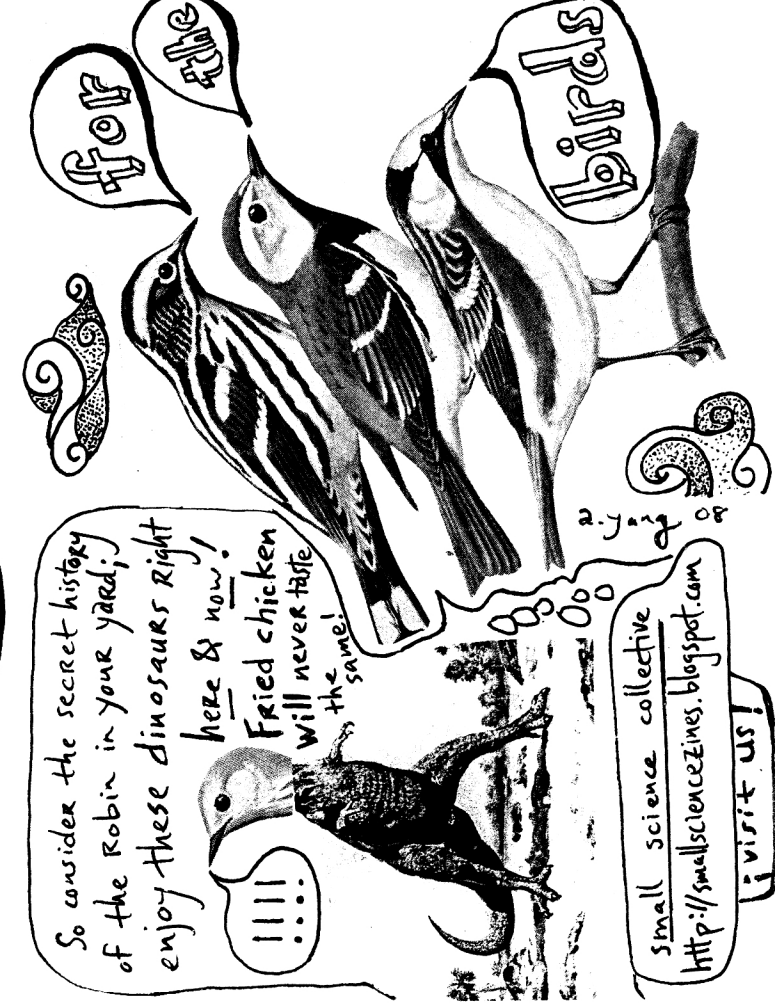 So consider the secret history
of the Robin in your yard;
enjoy these dinosaurs right
here & now!
Fried chicken
will never taste
the
same!
!!!!
small science collective
http://smallsciencezines.blogspot.com
¡visit us!
for
the
birds
a. yang 08